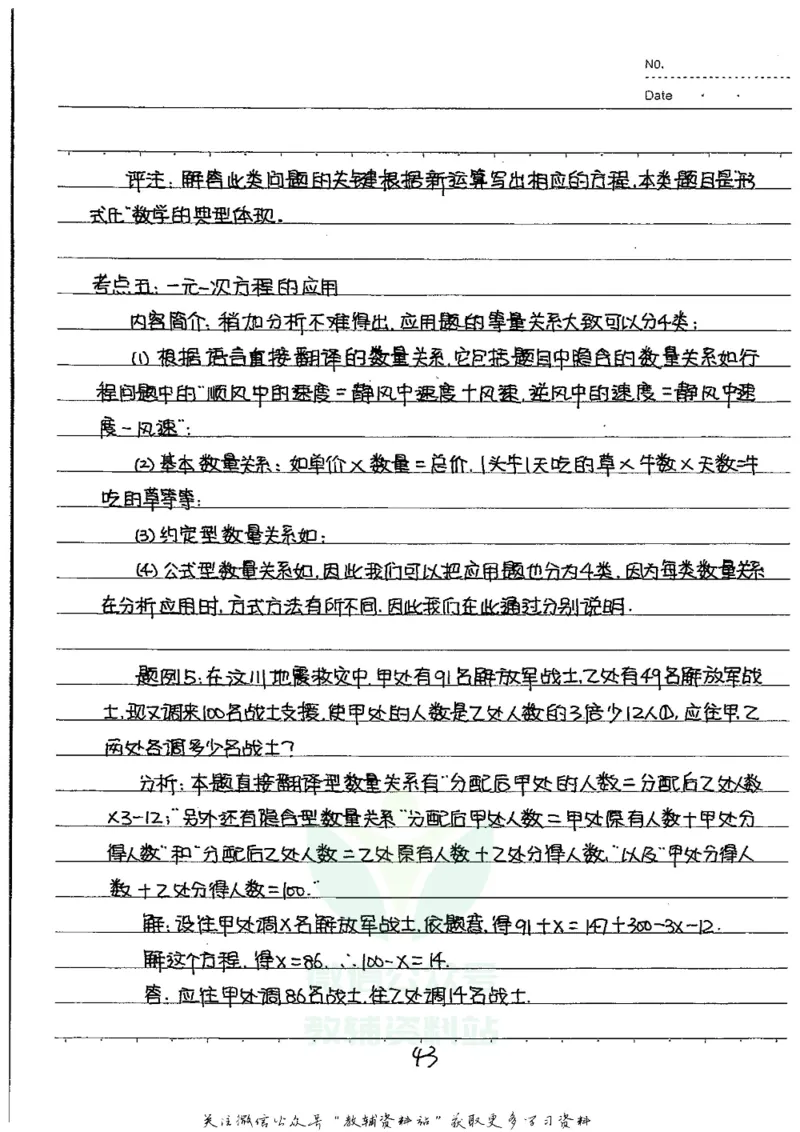 No.
Date
评注：解答此类问题的关键根据新运算写出相应的方程，本类题目是“形
式化”数学的典型体现。
考点五：一元一次方程的应用
内容简介：稍加分析不难得出，应用题的等量关系大致可以分4类：
(1) 根据语言直接翻译的数量关系，它包括题目中隐含的数量关系如行
程问题中的“顺风中的速度＝静风中速度＋风速，逆风中的速度＝静风中速
度－风速”；
(2) 基本数量关系：如单价×数量＝总价，1头牛1天吃的草×牛数×天数=牛
吃的草等等；
(3) 约定型数量关系如；
(4) 公式型数量关系如，因此我们可以把应用题也分为4类，因为每类数量关系
在分析应用时，方式方法有所不同，因此我们在此通过分别说明．
题例5：在汶川地震救灾中，甲处有91名解放军战士，乙处有49名解放军战
士，现又调来100名战士支援，使甲处的人数是乙处人数的3倍少12人，应往甲、乙
两处各调多少名战士？
分析：本题直接翻译型数量关系有“分配后甲处的人数＝分配后乙处人数
×3－12；”另外还有隐含型数量关系“分配后甲处人数＝甲处原有人数＋甲处分
得人数”和“分配后乙处人数＝乙处原有人数＋乙处分得人数，”以及“甲处分得人
数＋乙处分得人数=100．”
解：设往甲处调X名解放军战士，依题意，得91＋X＝147＋300－3X－12．
解这个方程，得X=86．∴100－X＝14．
答：应往甲处调86名战士，往乙处调14名战士．
微信公众号
教辅资料站
43
关注微信公众号“教辅资料站”获取更多学习资料